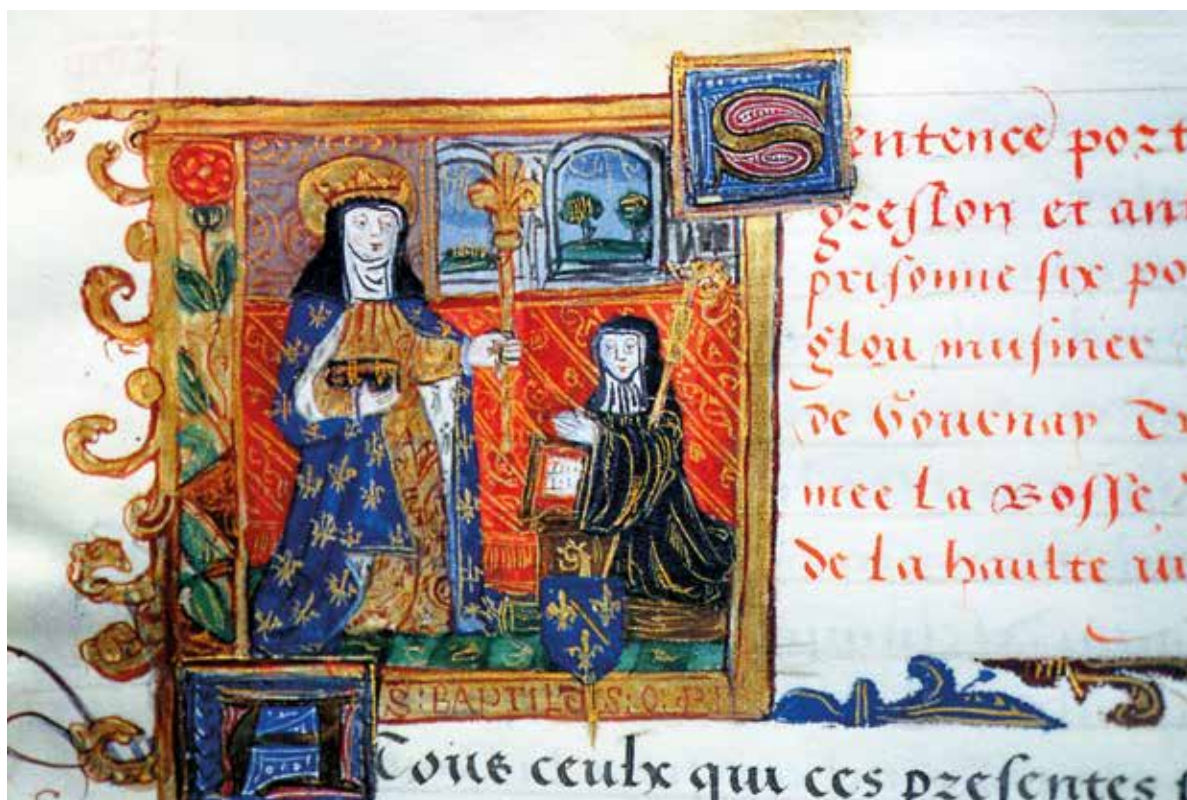 Sentence port
greslon et ant
prisonne six po
glou musnier
de Gouenay
mee La Bosse
de la haulte
S: BAPTILD
A Tous ceulx qui ces presentes